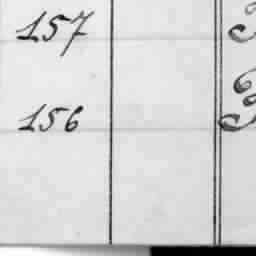 157
156